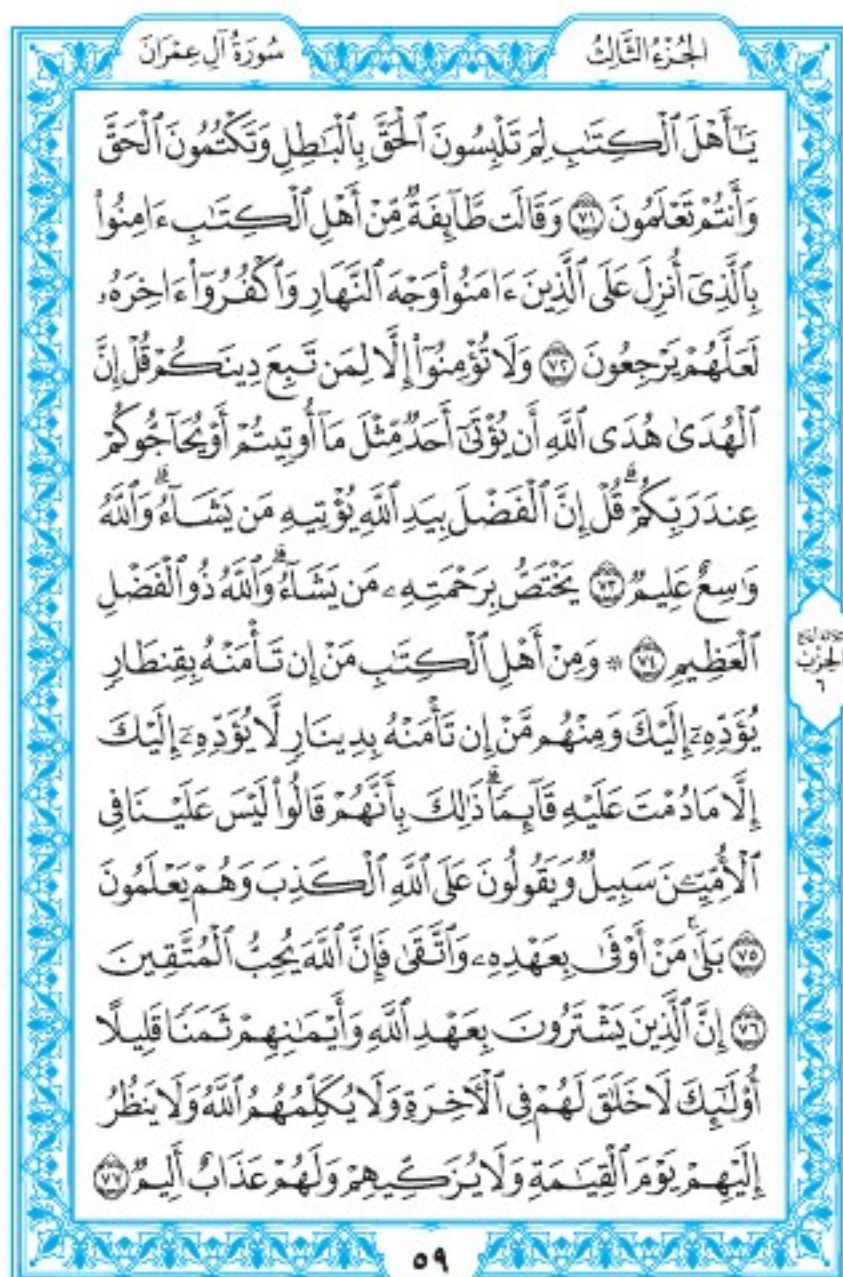 الجُزْءُ الثَّالِثُ
سُورَةُ آلِ عِمْرَانَ
يَٰٓأَهْلَ ٱلْكِتَٰبِ لِمَ تَلْبِسُونَ ٱلْحَقَّ بِٱلْبَٰطِلِ وَتَكْتُمُونَ ٱلْحَقَّ
وَأَنتُمْ تَعْلَمُونَ ٧١ وَقَالَت طَّآئِفَةٌ مِّنْ أَهْلِ ٱلْكِتَٰبِ ءَامِنُوا۟
بِٱلَّذِىٓ أُنزِلَ عَلَى ٱلَّذِينَ ءَامَنُوا۟ وَجْهَ ٱلنَّهَارِ وَٱكْفُرُوٓا۟ ءَاخِرَهُۥ
لَعَلَّهُمْ يَرْجِعُونَ ٧٢ وَلَا تُؤْمِنُوٓا۟ إِلَّا لِمَن تَبِعَ دِينَكُمْ قُلْ إِنَّ
ٱلْهُدَىٰ هُدَى ٱللَّهِ أَن يُؤْتَىٰٓ أَحَدٌ مِّثْلَ مَآ أُوتِيتُمْ أَوْ يُحَآجُّوكُمْ
عِندَ رَبِّكُمْ ۗ قُلْ إِنَّ ٱلْفَضْلَ بِيَدِ ٱللَّهِ يُؤْتِيهِ مَن يَشَآءُ ۗ وَٱللَّهُ
وَٰسِعٌ عَلِيمٌ ٧٣ يَخْتَصُّ بِرَحْمَتِهِۦ مَن يَشَآءُ ۗ وَٱللَّهُ ذُو ٱلْفَضْلِ
ٱلْعَظِيمِ ٧٤ ۞ وَمِنْ أَهْلِ ٱلْكِتَٰبِ مَنْ إِن تَأْمَنْهُ بِقِنطَارٍ
الحِزْب
٦
يُؤَدِّهِۦٓ إِلَيْكَ وَمِنْهُم مَّنْ إِن تَأْمَنْهُ بِدِينَارٍ لَّا يُؤَدِّهِۦٓ إِلَيْكَ
إِلَّا مَا دُمْتَ عَلَيْهِ قَآئِمًا ۗ ذَٰلِكَ بِأَنَّهُمْ قَالُوا۟ لَيْسَ عَلَيْنَا فِى
ٱلْأُمِّيِّـۧنَ سَبِيلٌ وَيَقُولُونَ عَلَى ٱللَّهِ ٱلْكَذِبَ وَهُمْ يَعْلَمُونَ
٧٥ بَلَىٰ مَنْ أَوْفَىٰ بِعَهْدِهِۦ وَٱتَّقَىٰ فَإِنَّ ٱللَّهَ يُحِبُّ ٱلْمُتَّقِينَ
٧٦ إِنَّ ٱلَّذِينَ يَشْتَرُونَ بِعَهْدِ ٱللَّهِ وَأَيْمَٰنِهِمْ ثَمَنًا قَلِيلًا
أُو۟لَٰٓئِكَ لَا خَلَٰقَ لَهُمْ فِى ٱلْـَٔاخِرَةِ وَلَا يُكَلِّمُهُمُ ٱللَّهُ وَلَا يَنظُرُ
إِلَيْهِمْ يَوْمَ ٱلْقِيَٰمَةِ وَلَا يُزَكِّيهِمْ وَلَهُمْ عَذَابٌ أَلِيمٌ ٧٧
٥٩